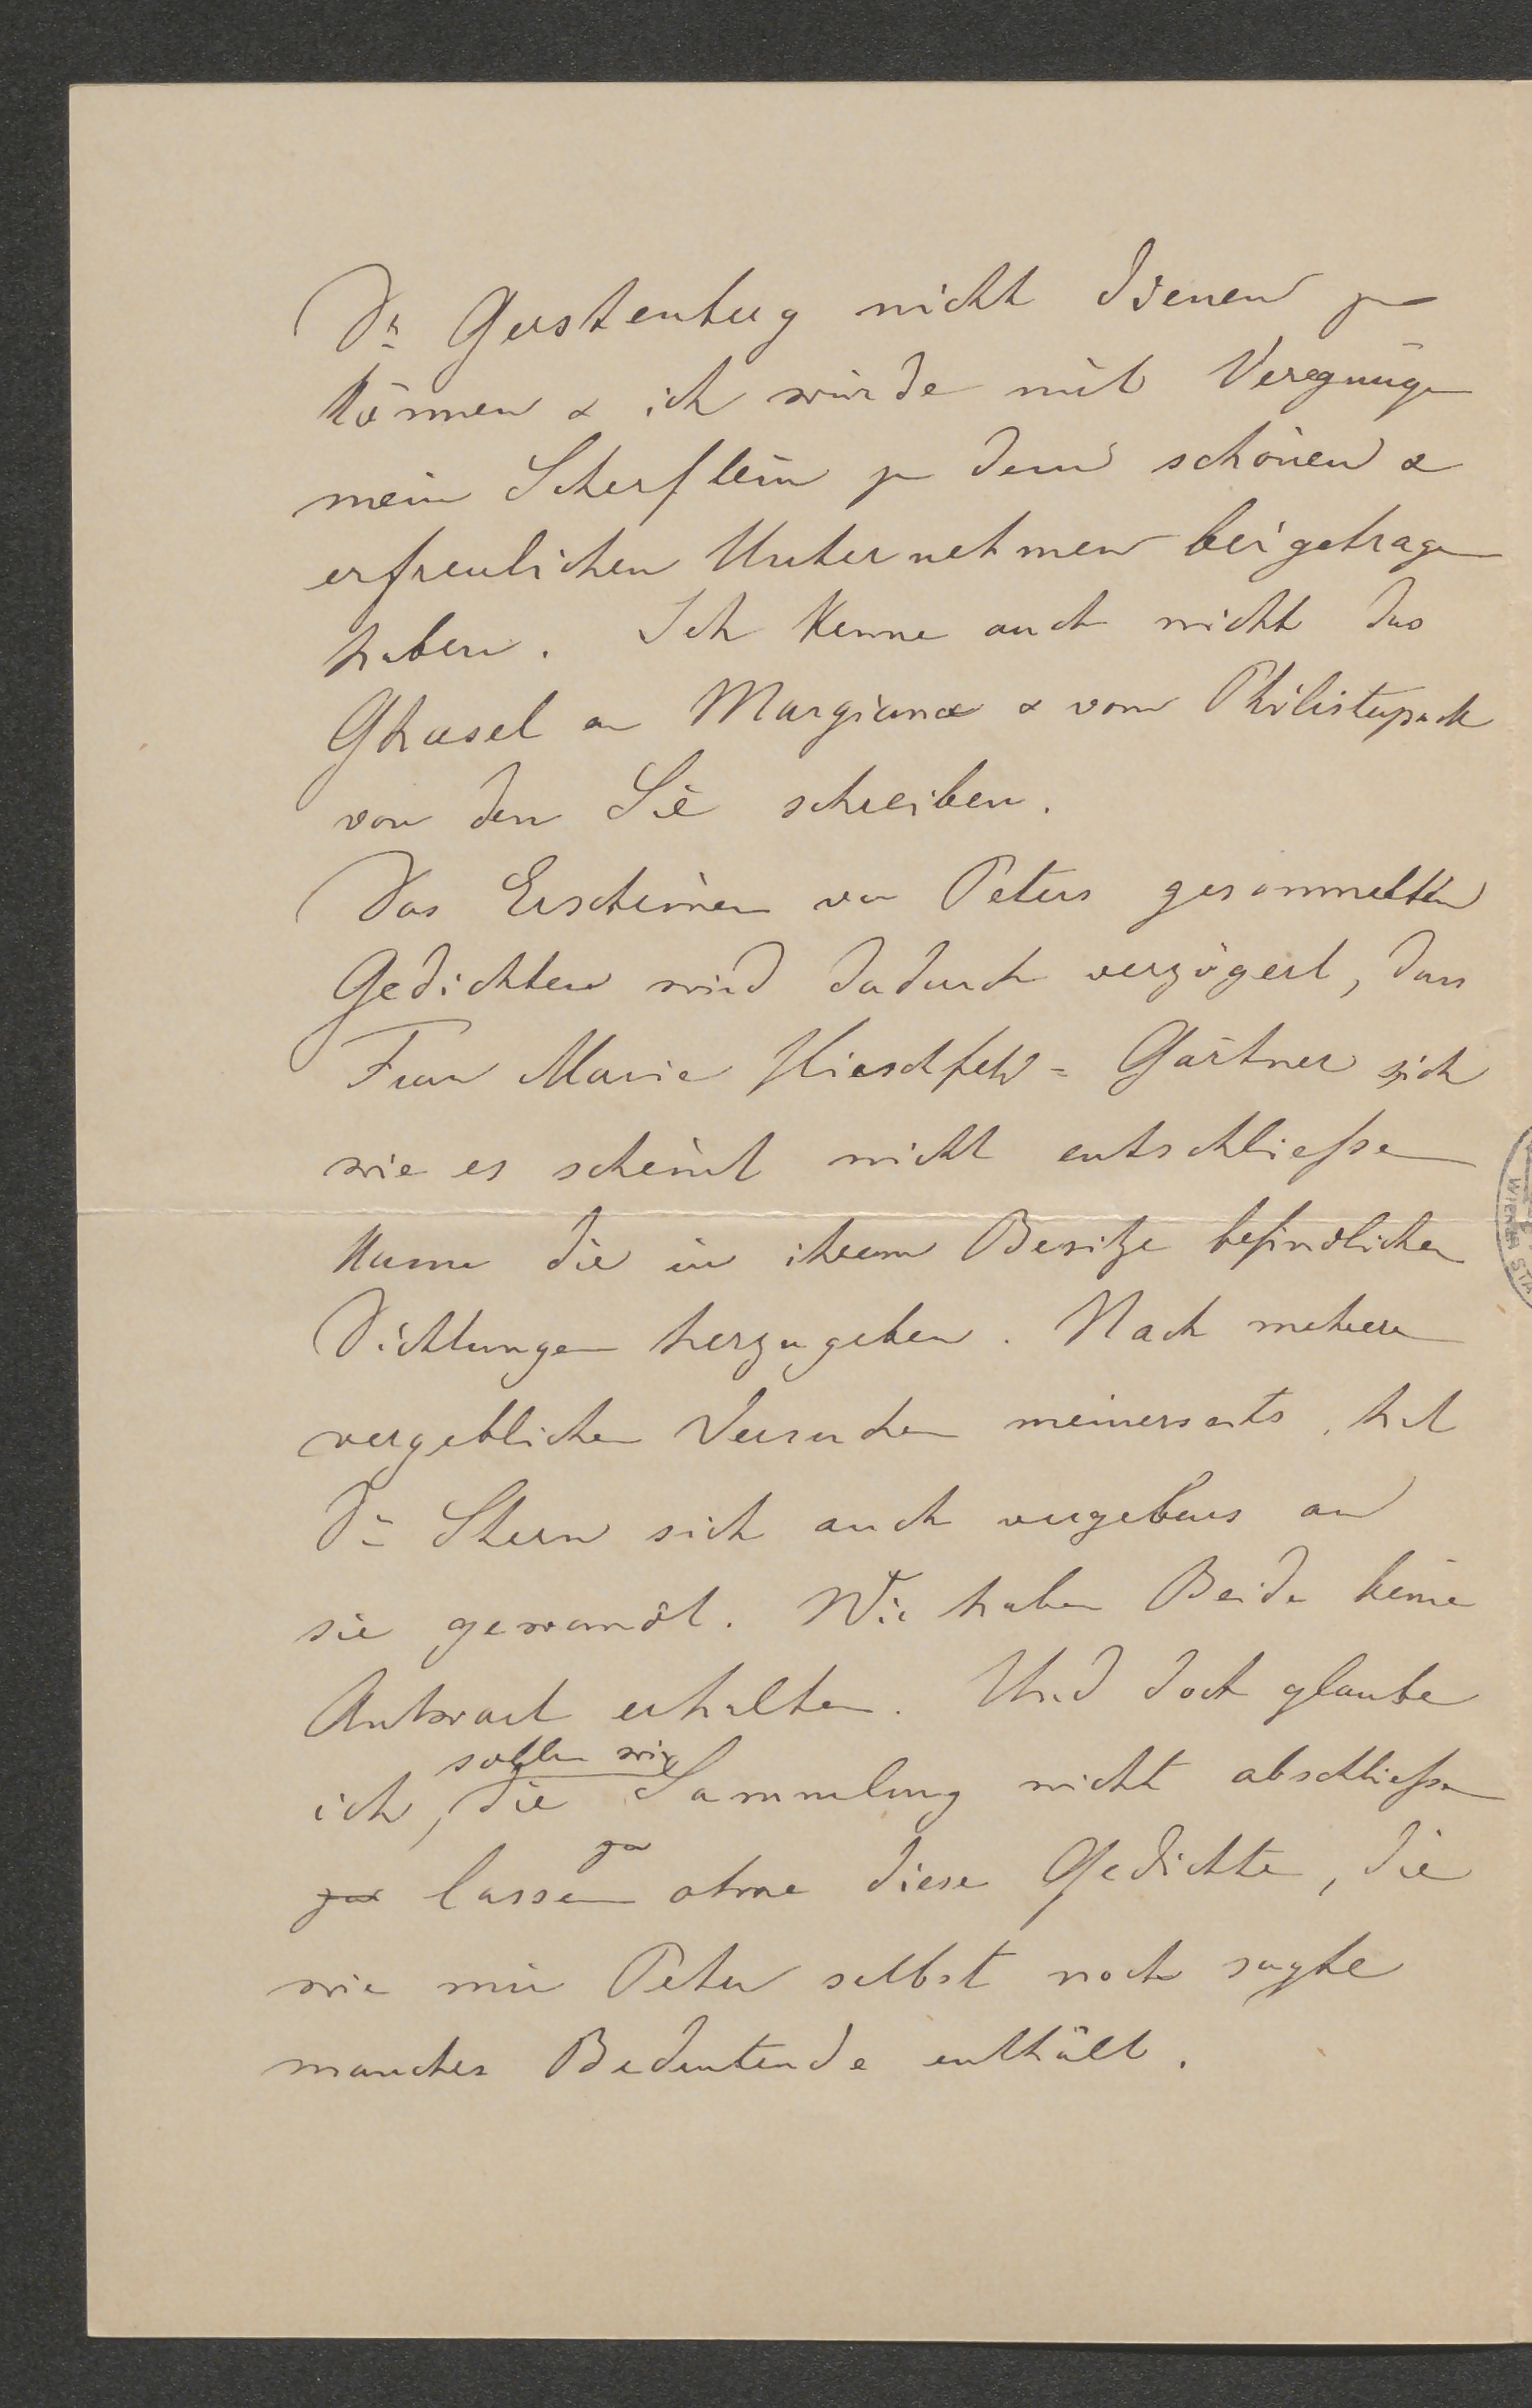 Dr Gerstenberg nicht dienen zu
können & ich würde mit Veregnügen
mein Scherflein zu dem schönen &
erfreulichen Unternehmen beigetragen
haben. Ich kenne auch nicht das
Ghasel an Margiana & vom Philisterpack
von den Sie schreiben.
Das Erscheinen von Peters gesammelten
Gedichten wird dadurch verzögert, dass
Frau Marie Hirschfeld = Gärtner sich
wie es scheint nicht entschließen
kann die in ihrem Besitze befindlichen
Dichtungen herzugeben. Nach mehreren
vergeblichen Versuchen meinerseits, hat
Dr Stern sich auch vergebens an
sie gewandt. Wir haben Beide keine
Antwort erhalten. Und doch glaube
sollen wir
ich, die Sammlung nicht abschließen
zu
zu lassen ohne diese Gedichte, die
wie mir Peter selbst noch sagte
manches Bedeutende enthält.
WIENER STA